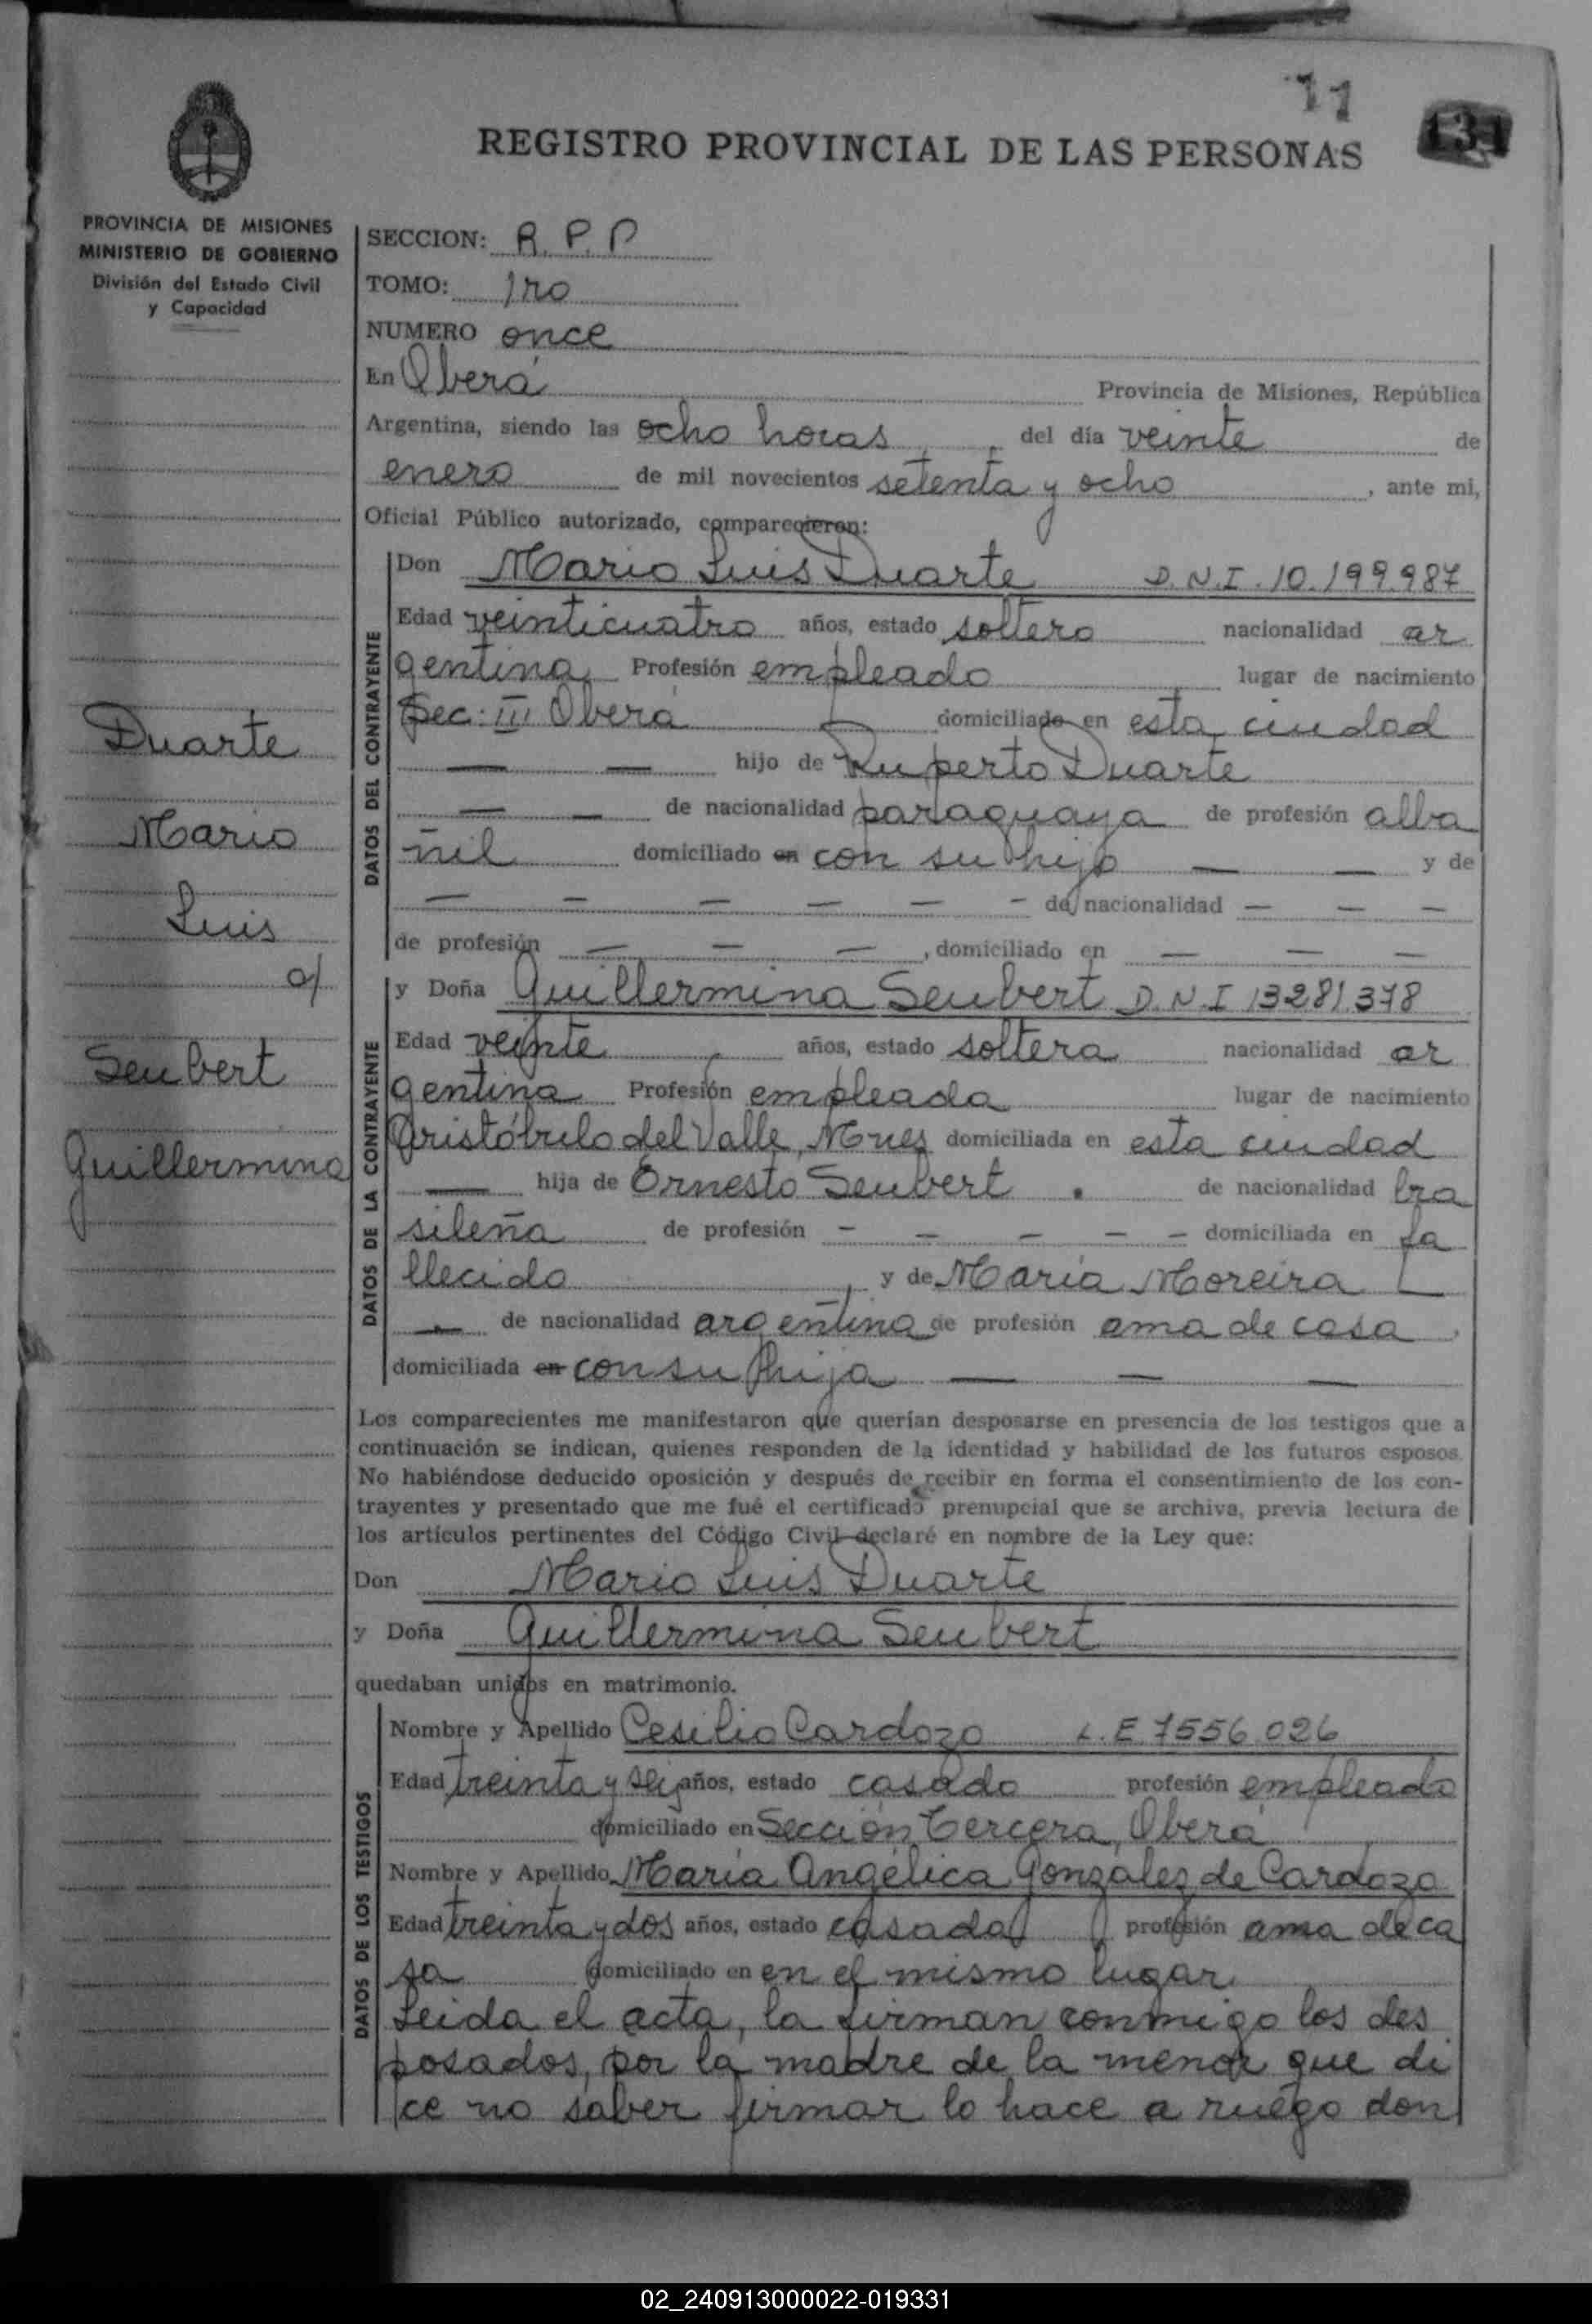 11
131
REGISTRO PROVINCIAL DE LAS PERSONAS
PROVINCIA DE MISIONES
MINISTERIO DE GOBIERNO
División del Estado Civil
y Capacidad
Duarte
Mario
Luis
c/
Seubert
Guillermina
SECCION: R. P. P
TOMO: 1ro
NUMERO once
En Oberá Provincia de Misiones, República
Argentina, siendo las ocho horas del día veinte de
enero de mil novecientos setenta y ocho, ante mi,
Oficial Público autorizado, comparecieron:
DATOS DEL CONTRAYENTE
Don Mario Luis Duarte D.N.I. 10.199.987
Edad veinticuatro años, estado soltero nacionalidad ar
gentina Profesión empleado lugar de nacimiento
Sec. III Oberá domiciliado en esta ciudad
— — hijo de Ruperto Duarte
— — de nacionalidad paraguaya de profesión alba
ñil domiciliado en con su hijo — — y de
— — — — — - de nacionalidad — — —
de profesión — — — , domiciliado en — — —
DATOS DE LA CONTRAYENTE
y Doña Guillermina Seubert D.N.I 13281.378
Edad veinte años, estado soltera nacionalidad ar
gentina Profesión empleada lugar de nacimiento
Aristóbulo del Valle, Mnes domiciliada en esta ciudad
— hija de Ernesto Seubert . de nacionalidad bra
sileña de profesión - — — — — domiciliada en fa
llecido, y de María Moreira —
— de nacionalidad argentina de profesión ama de casa,
domiciliada en con su hija — — —
Los comparecientes me manifestaron que querían desposarse en presencia de los testigos que a
continuación se indican, quienes responden de la identidad y habilidad de los futuros esposos.
No habiéndose deducido oposición y después de recibir en forma el consentimiento de los con-
trayentes y presentado que me fué el certificado prenupcial que se archiva, previa lectura de
los artículos pertinentes del Código Civil declaré en nombre de la Ley que:
Don Mario Luis Duarte
y Doña Guillermina Seubert
quedaban unidos en matrimonio.
DATOS DE LOS TESTIGOS
Nombre y Apellido Cesilio Cardozo L.E. 7556.026
Edad treinta y seis años, estado casado profesión empleado
domiciliado en Sección Tercera, Oberá
Nombre y Apellido María Angélica Gonzalez de Cardozo
Edad treinta y dos años, estado casada profesión ama de ca
sa domiciliado en en el mismo lugar.
Leida el acta, la firman conmigo los des
posados, por la madre de la menor que di
ce no saber firmar lo hace a ruego don
02_240913000022-019331